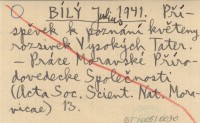 BÍLÝ Julius 1941. Pří-
spěvek k poznání květeny
rozsivek Vysokých Tater.
— Práce Moravské Příro-
dovedecke Společnosti
(Acta Soc. Scient. Nat. Mora-
vicae) 13.